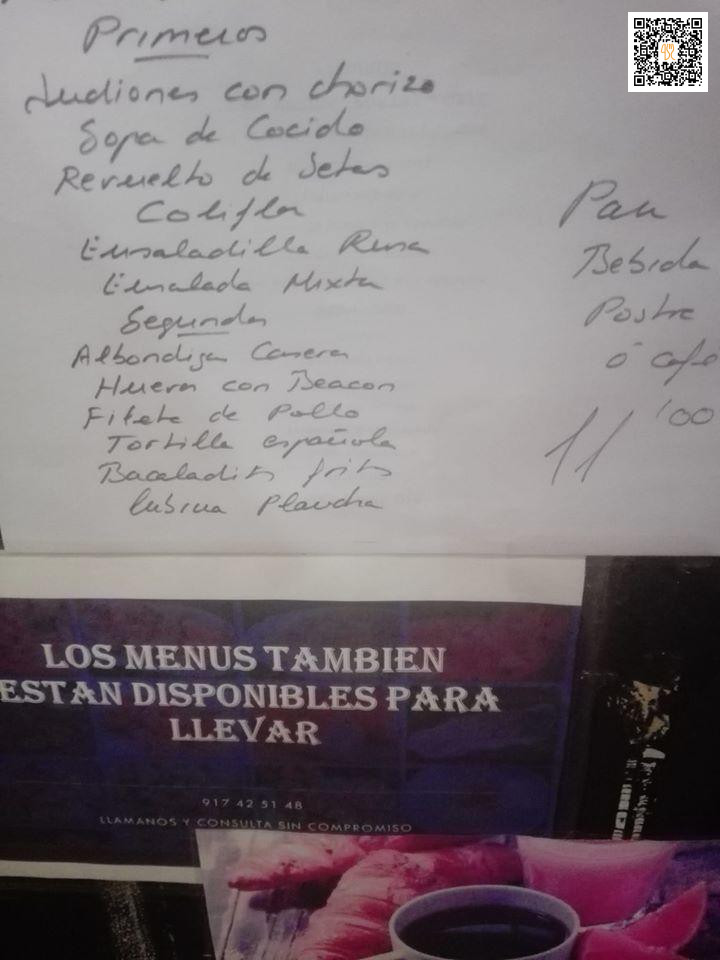 Primeros
Judiones con chorizo
Sopa de Cocido
Revuelto de Setas
Coliflor
Ensaladilla Rusa
Ensalada Mixta
Segundos
Albondigas Caseras
Huevos con Beacon
Filete de Pollo
Tortilla española
Bacaladitos fritos
Lubina Plancha
Pan
Bebida
Postre
ó café
11'00
LOS MENUS TAMBIEN
ESTAN DISPONIBLES PARA
LLEVAR
917 42 51 48
LLAMANOS Y CONSULTA SIN COMPROMISO